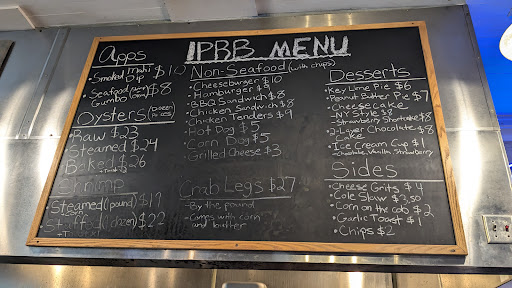 IPBB MENU
Apps
• Smoked Mahi $10
Dip
• Seafood
Gumbo $8
Oysters (Dozen
• Raw $23
• Steamed $24
• Baked $26
Shrimp
• Steamed (1 pound) $19
• Stuffed (1 dozen) $22
Non-Seafood (with chips)
• Cheeseburger $10
• Hamburger $9
• BBQ Sandwich $8
• Chicken Sandwich $8
• Chicken Tenders $9
• Hot Dog $5
• Corn Dog $5
• Grilled Cheese $3
Crab Legs $27
• By the pound
• Comes with corn
and butter
Desserts
• Key Lime Pie $6
• Peanut Butter Pie $7
• Cheesecake
- NY Style $8
- Strawberry Shortcake $8
• 2-Layer Chocolate $8
Cake
• Ice Cream Cup $1
- Chocolate, Vanilla, Strawberry
Sides
• Cheese Grits $4
• Cole Slaw $3.50
• Corn on the cob $2
• Garlic Toast $1
• Chips $2